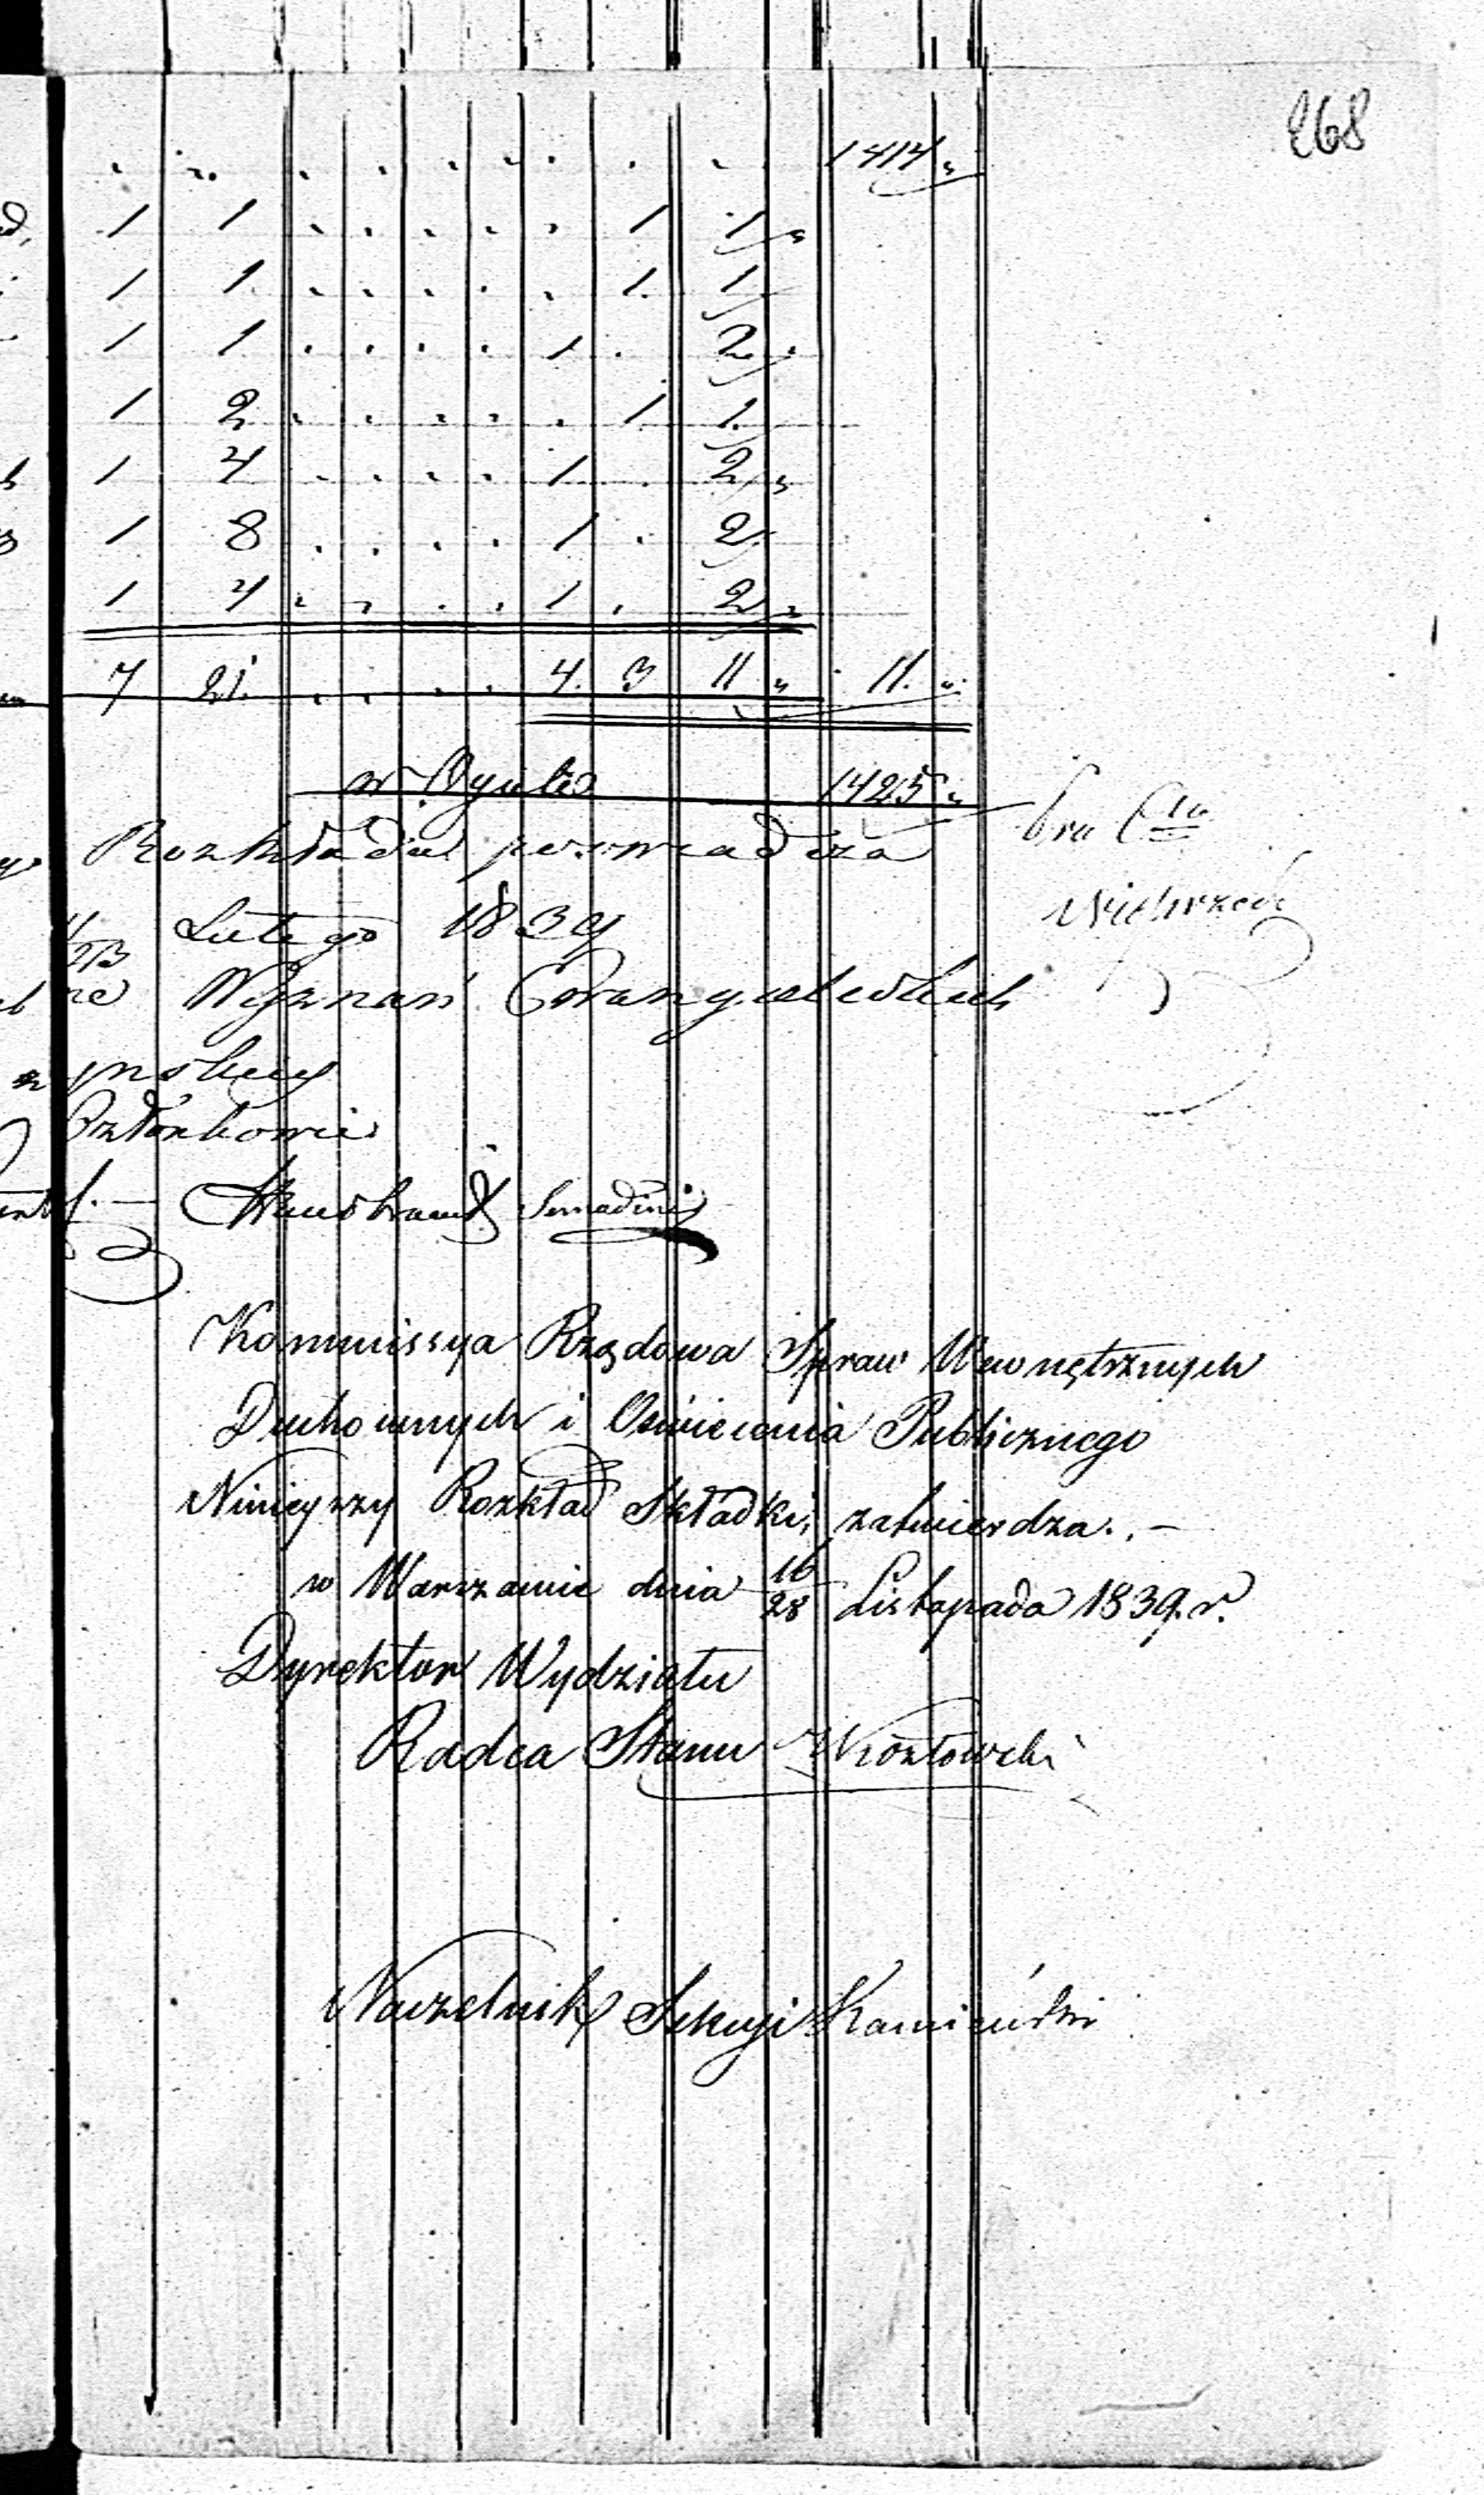 268
1414 "
1 1 . . . . . 1 1 "
1 1 . . . . . 1 1
1 1 . . . . 1 . 2 "
1 2 . . . . . 1 1
1 4 . . . . 1 . 2 "
1 8 . . . . 1 . 2
1 4 . . . . 1 . 2 "
7 21 . . . . 4 3 11 " 11 "
w Ogule 1425 "
Rozkładu poswiadcza
Lutego 1839
Wyznań Ewangelickich
Członkowie
Semadini
Kommissya Rządowa Spraw Wewnętrznych
Duchownych i Oświecenia Publicznego
Ninieyszy Rozkład Składki zatwierdza. —
w Warszawie dnia 16/28 Listopada 1839 r.
Dyrektor Wydziału
Radca Stanu Kozłowski
Naczelnik Sekcyi Kamiński